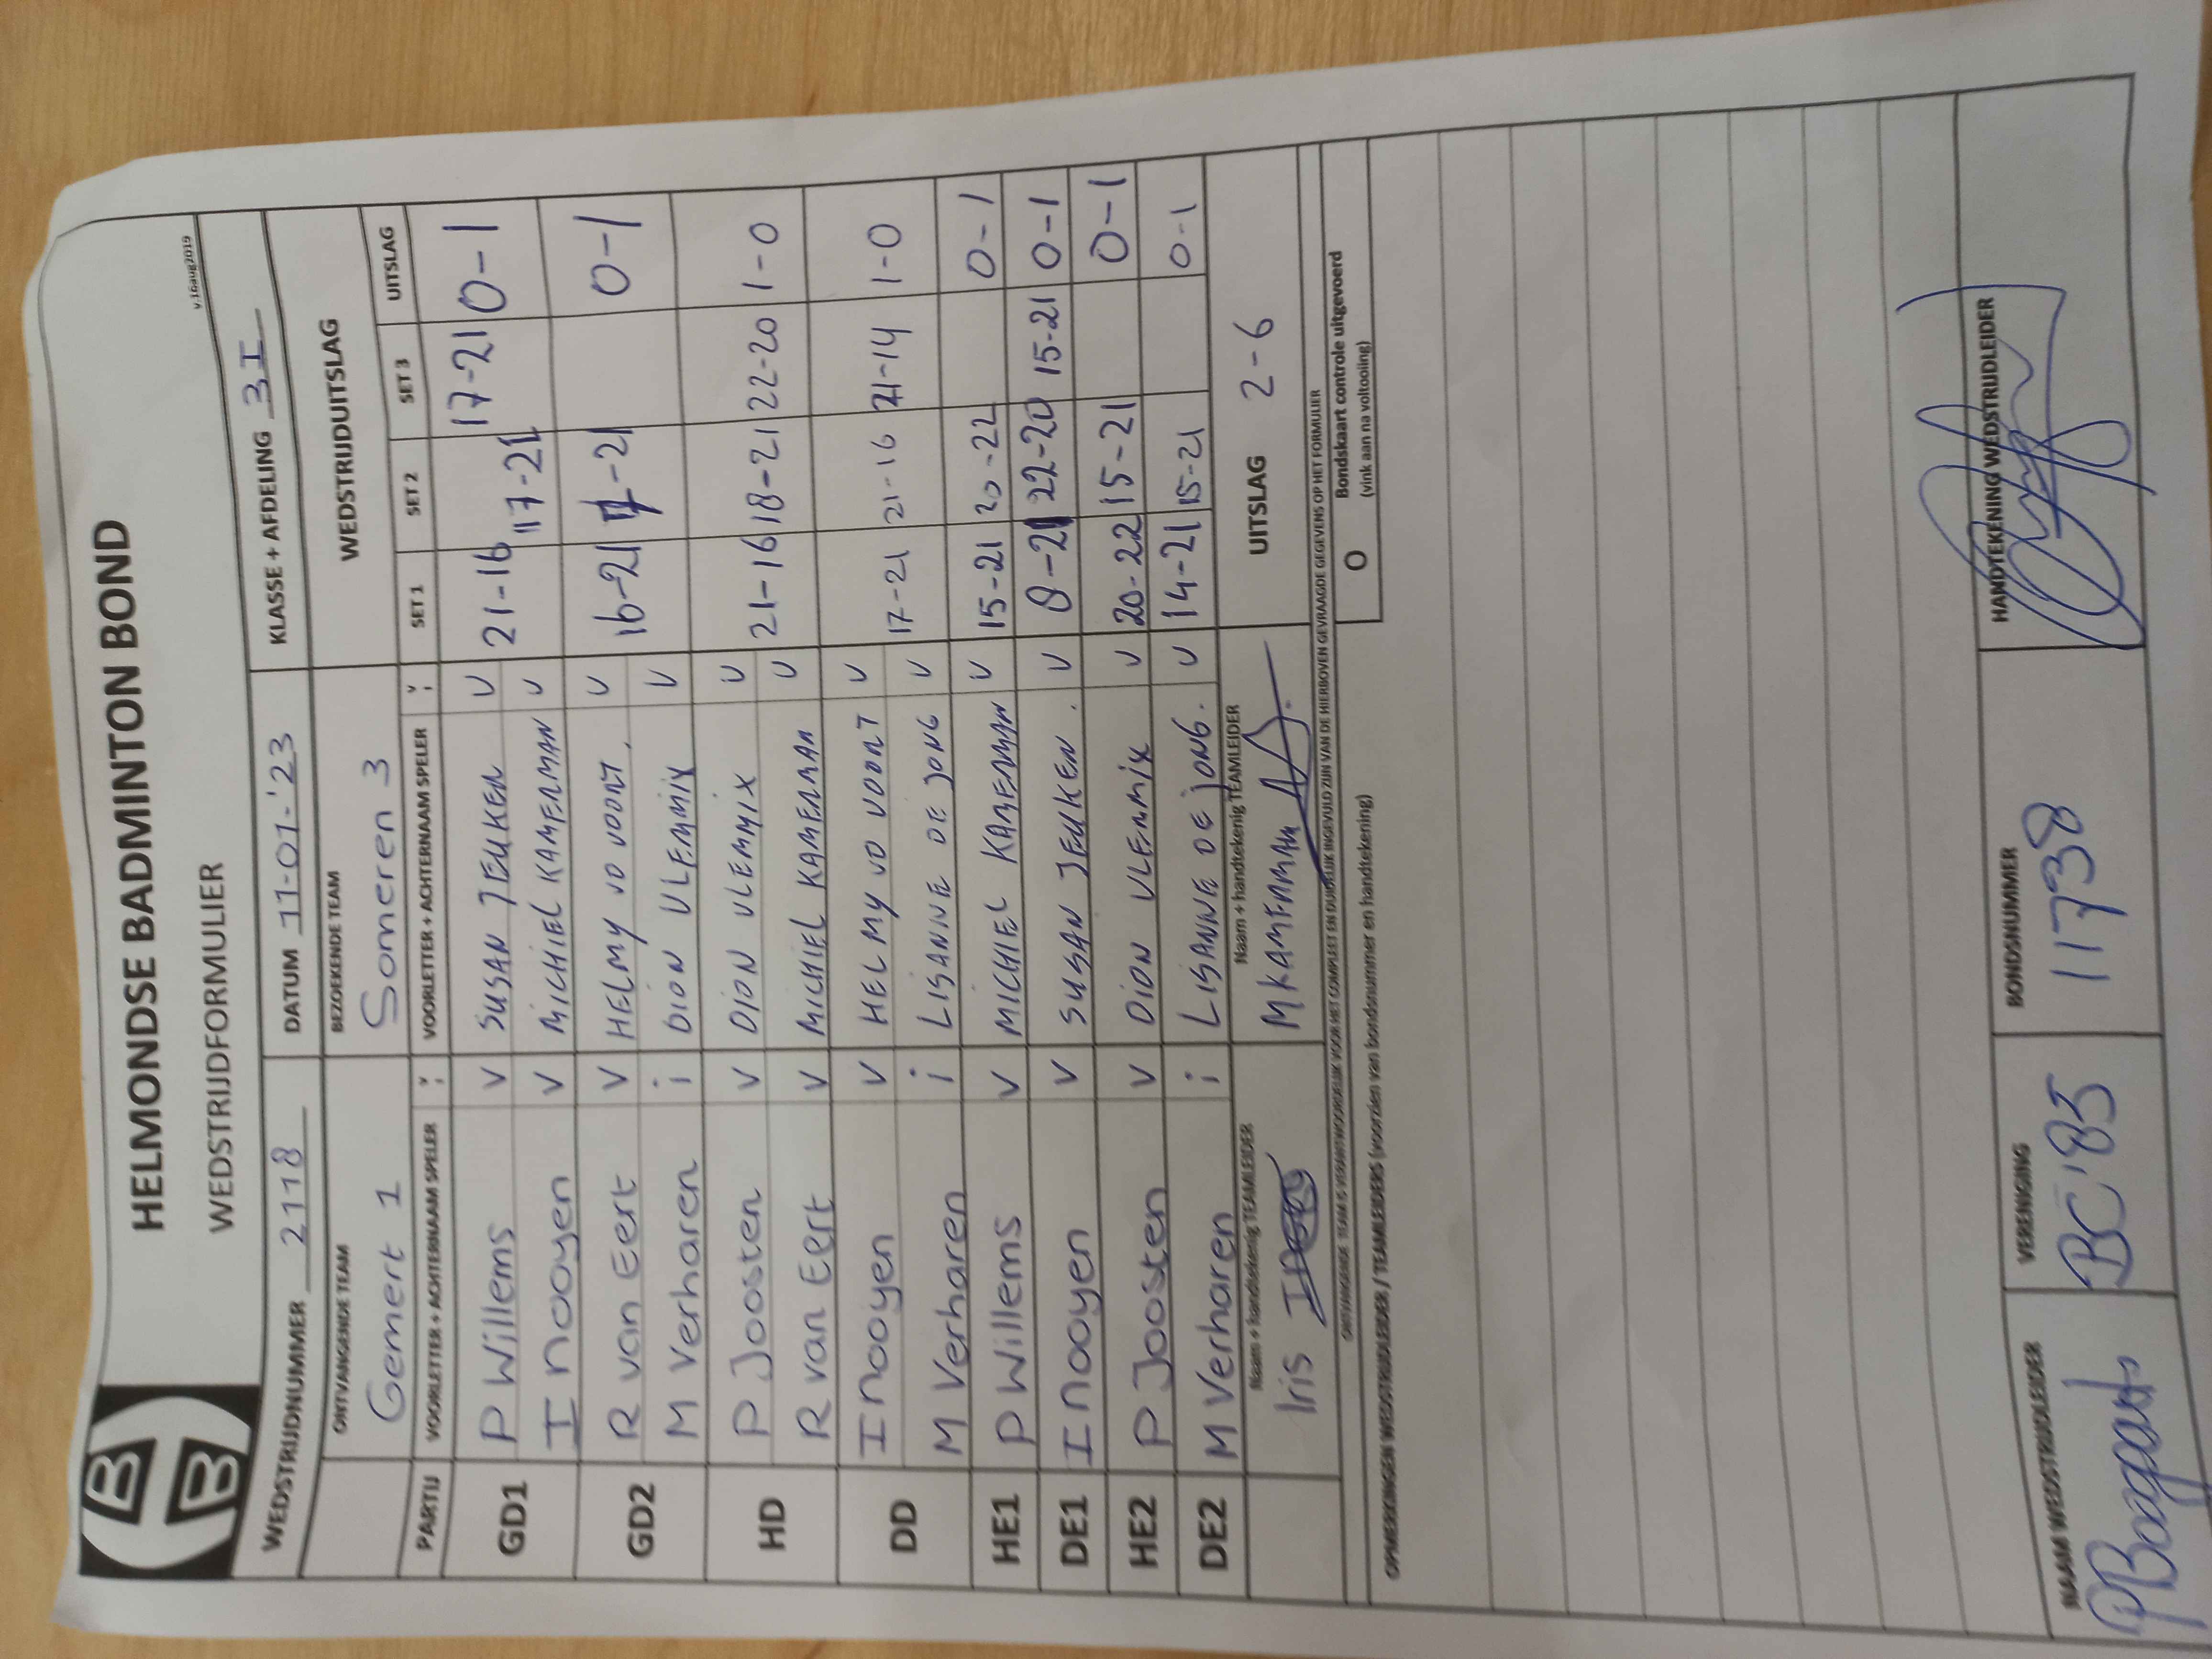 HELMONDSE BADMINTON BOND
WEDSTRIJDFORMULIER
v.16aug2019
WEDSTRIJDNUMMER 2118 DATUM 11-01-'23 KLASSE + AFDELING 3I
ONTVANGENDE TEAM BEZOEKENDE TEAM WEDSTRIJDUITSLAG
Gemert 1 Someren 3
PARTIJ VOORLETTER + ACHTERNAAM SPELER V/I VOORLETTER + ACHTERNAAM SPELER V/I SET 1 SET 2 SET 3 UITSLAG
GD1 P Willems V SUSAN JEUKEN V 21-16 17-21 17-21 0-1
I nooyen V MICHIEL KAMERMAN V
GD2 R van Eert V HELMY VD VOORT. V 16-21 -21 0-1
M Verharen i DION VLEMMIX V
HD P Joosten V DION VLEMMIX V 21-16 18-21 22-20 1-0
R van Eert V MICHIEL KAMERMAN V
DD I nooyen V HELMY VD VOORT V 17-21 21-16 21-14 1-0
M Verharen i LISANNE DE JONG V
HE1 P Willems V MICHIEL KAMERMAN V 15-21 20-22 0-1
DE1 I nooyen V SUSAN JEUKEN. V 8-21 22-20 15-21 0-1
HE2 P Joosten V DION VLEMMIX V 20-22 15-21 0-1
DE2 M Verharen i LISANNE DE JONG. V 14-21 15-21 0-1
Naam + handtekenig TEAMLEIDER Naam + handtekenig TEAMLEIDER UITSLAG 2-6
Iris M KAMERMAN
ONTVANGENDE TEAM IS VERANTWOORDELIJK VOOR HET COMPLEET EN DUIDELIJK INGEVULD ZIJN VAN DE HIERBOVEN GEVRAAGDE GEGEVENS OP HET FORMULIER
OPMERKINGEN WEDSTRIJDLEIDER / TEAMLEIDERS (voorzien van bondsnummer en handtekening) O Bondskaart controle uitgevoerd
(vink aan na voltooiing)
NAAM WEDSTRIJDLEIDER VERENIGING BONDSNUMMER HANDTEKENING WEDSTRIJDLEIDER
P Boogaarts BC'85 11738